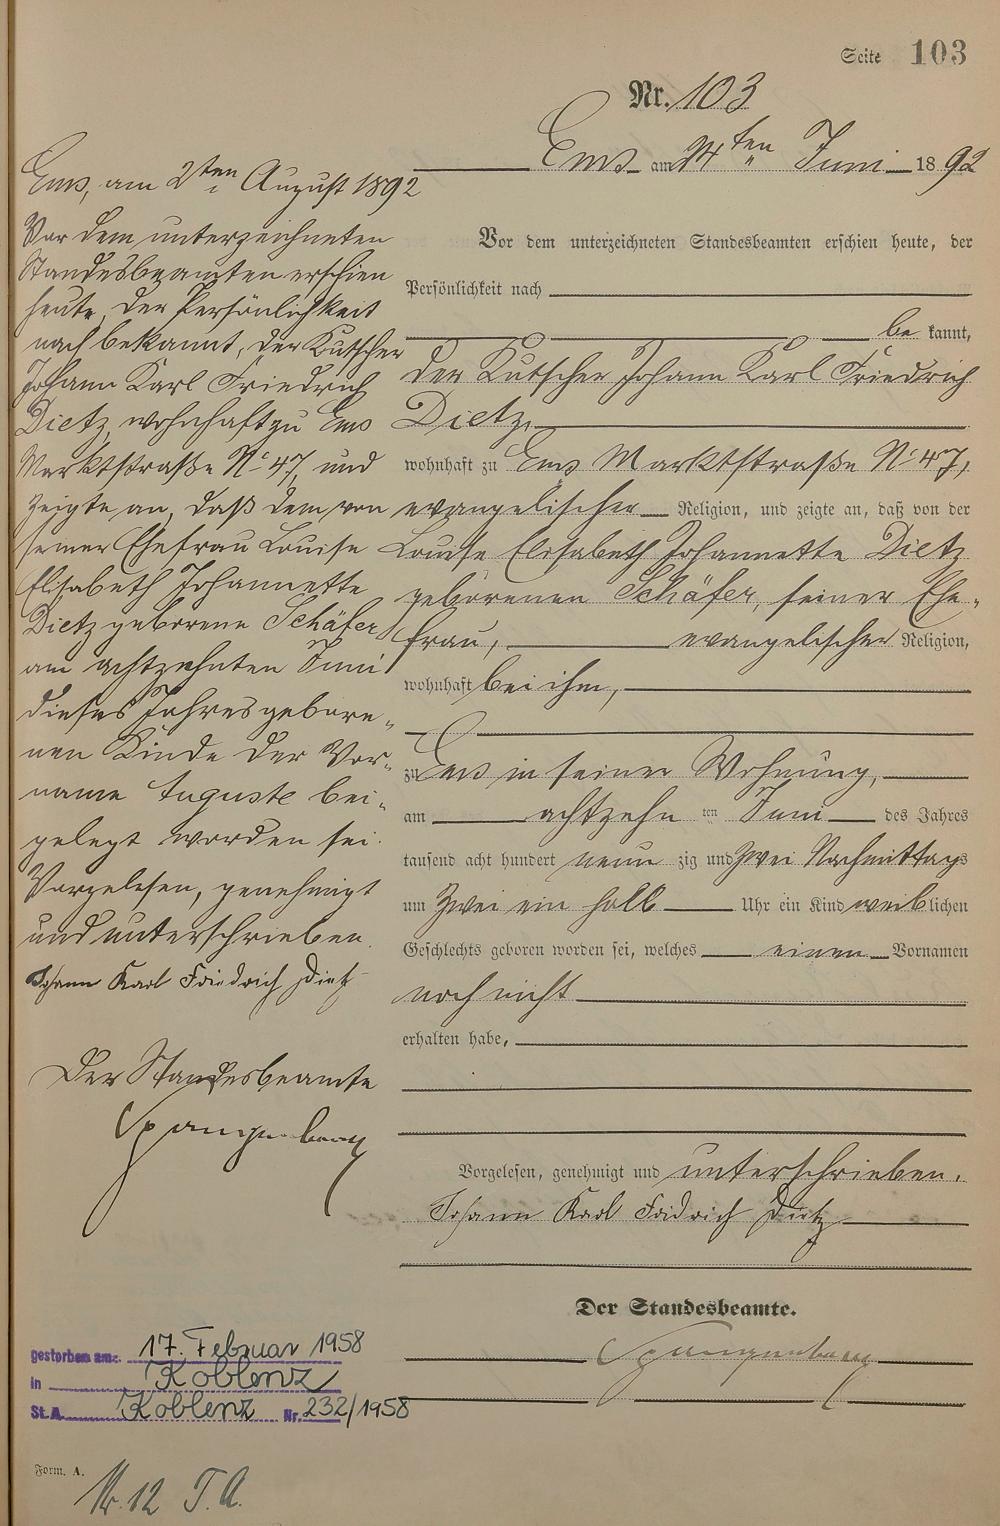 Seite 103
Nr. 103
Ems am 24ten Juni 1892
Vor dem unterzeichneten Standesbeamten erschien heute, der
Persönlichkeit nach
bekannt,
der Kutscher Johann Karl Friedrich
Dietz,
wohnhaft zu Ems Marktstraße No 47,
evangelischer Religion, und zeigte an, daß von der
Louise Elisabeth Johannette Dietz
geborenen Schäfer, seiner Ehe-
frau, evangelischer Religion,
wohnhaft bei ihm,
zu Ems in seiner Wohnung,
am achtzehn ten Juni des Jahres
tausend acht hundert neun zig und zwei Nachmittags
um zwei ein halb Uhr ein Kind weiblichen
Geschlechts geboren worden sei, welches einen Vornamen
noch nicht
erhalten habe,
Vorgelesen, genehmigt und unterschrieben.
Johann Karl Fridrich Dietz
Der Standesbeamte.
Spangenberg
Ems, am 2ten August 1892
Vor dem unterzeichneten
Standesbeamten erschien
heute, der Persönlichkeit
nach bekannt, der Kutscher
Johann Karl Friedrich
Dietz, wohnhaft zu Ems
Marktstraße No 47, und
zeigte an, daß dem von
seiner Ehefrau Louise
Elisabeth Johannette
Dietz geborene Schäfer
am achtzehnten Juni
dieses Jahres gebore-
nen Kinde der Vor-
name Auguste bei-
gelegt worden sei.
Vorgelesen, genehmigt
und unterschrieben.
Johann Karl Friedrich Dietz
Der Standesbeamte
Spangenberg
gestorben am: 17. Februar 1958
in Koblenz
St.A. Koblenz Nr. 232/1958
Form. A.
Nr. 12 T. A.